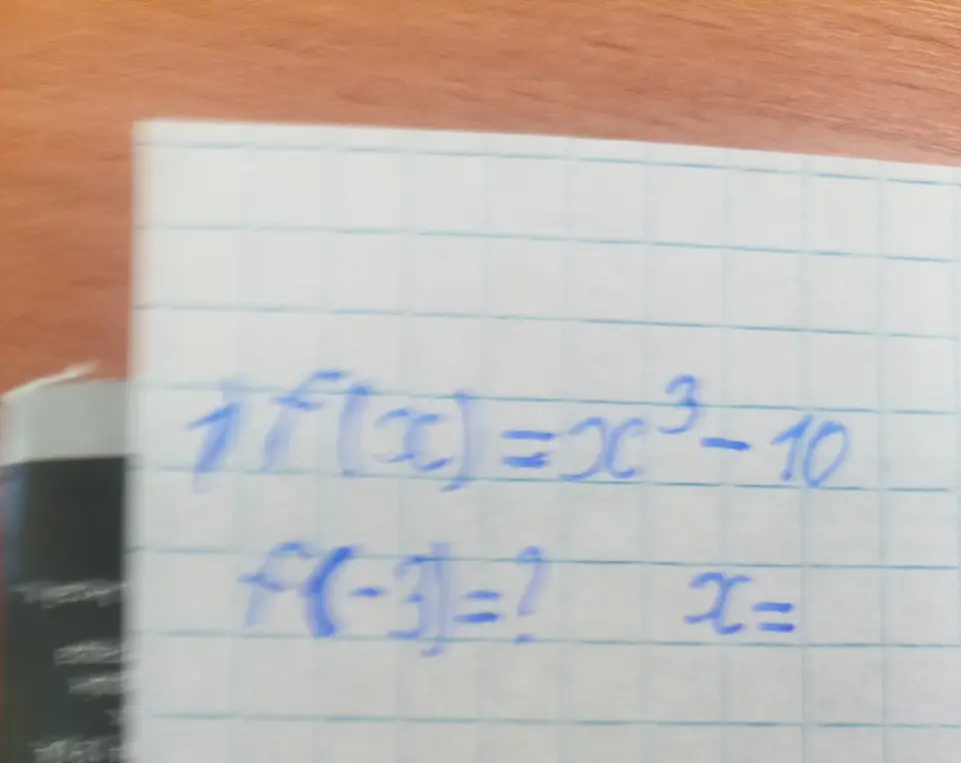 1 f(x) = x³ - 10
f(-3) = ? x =